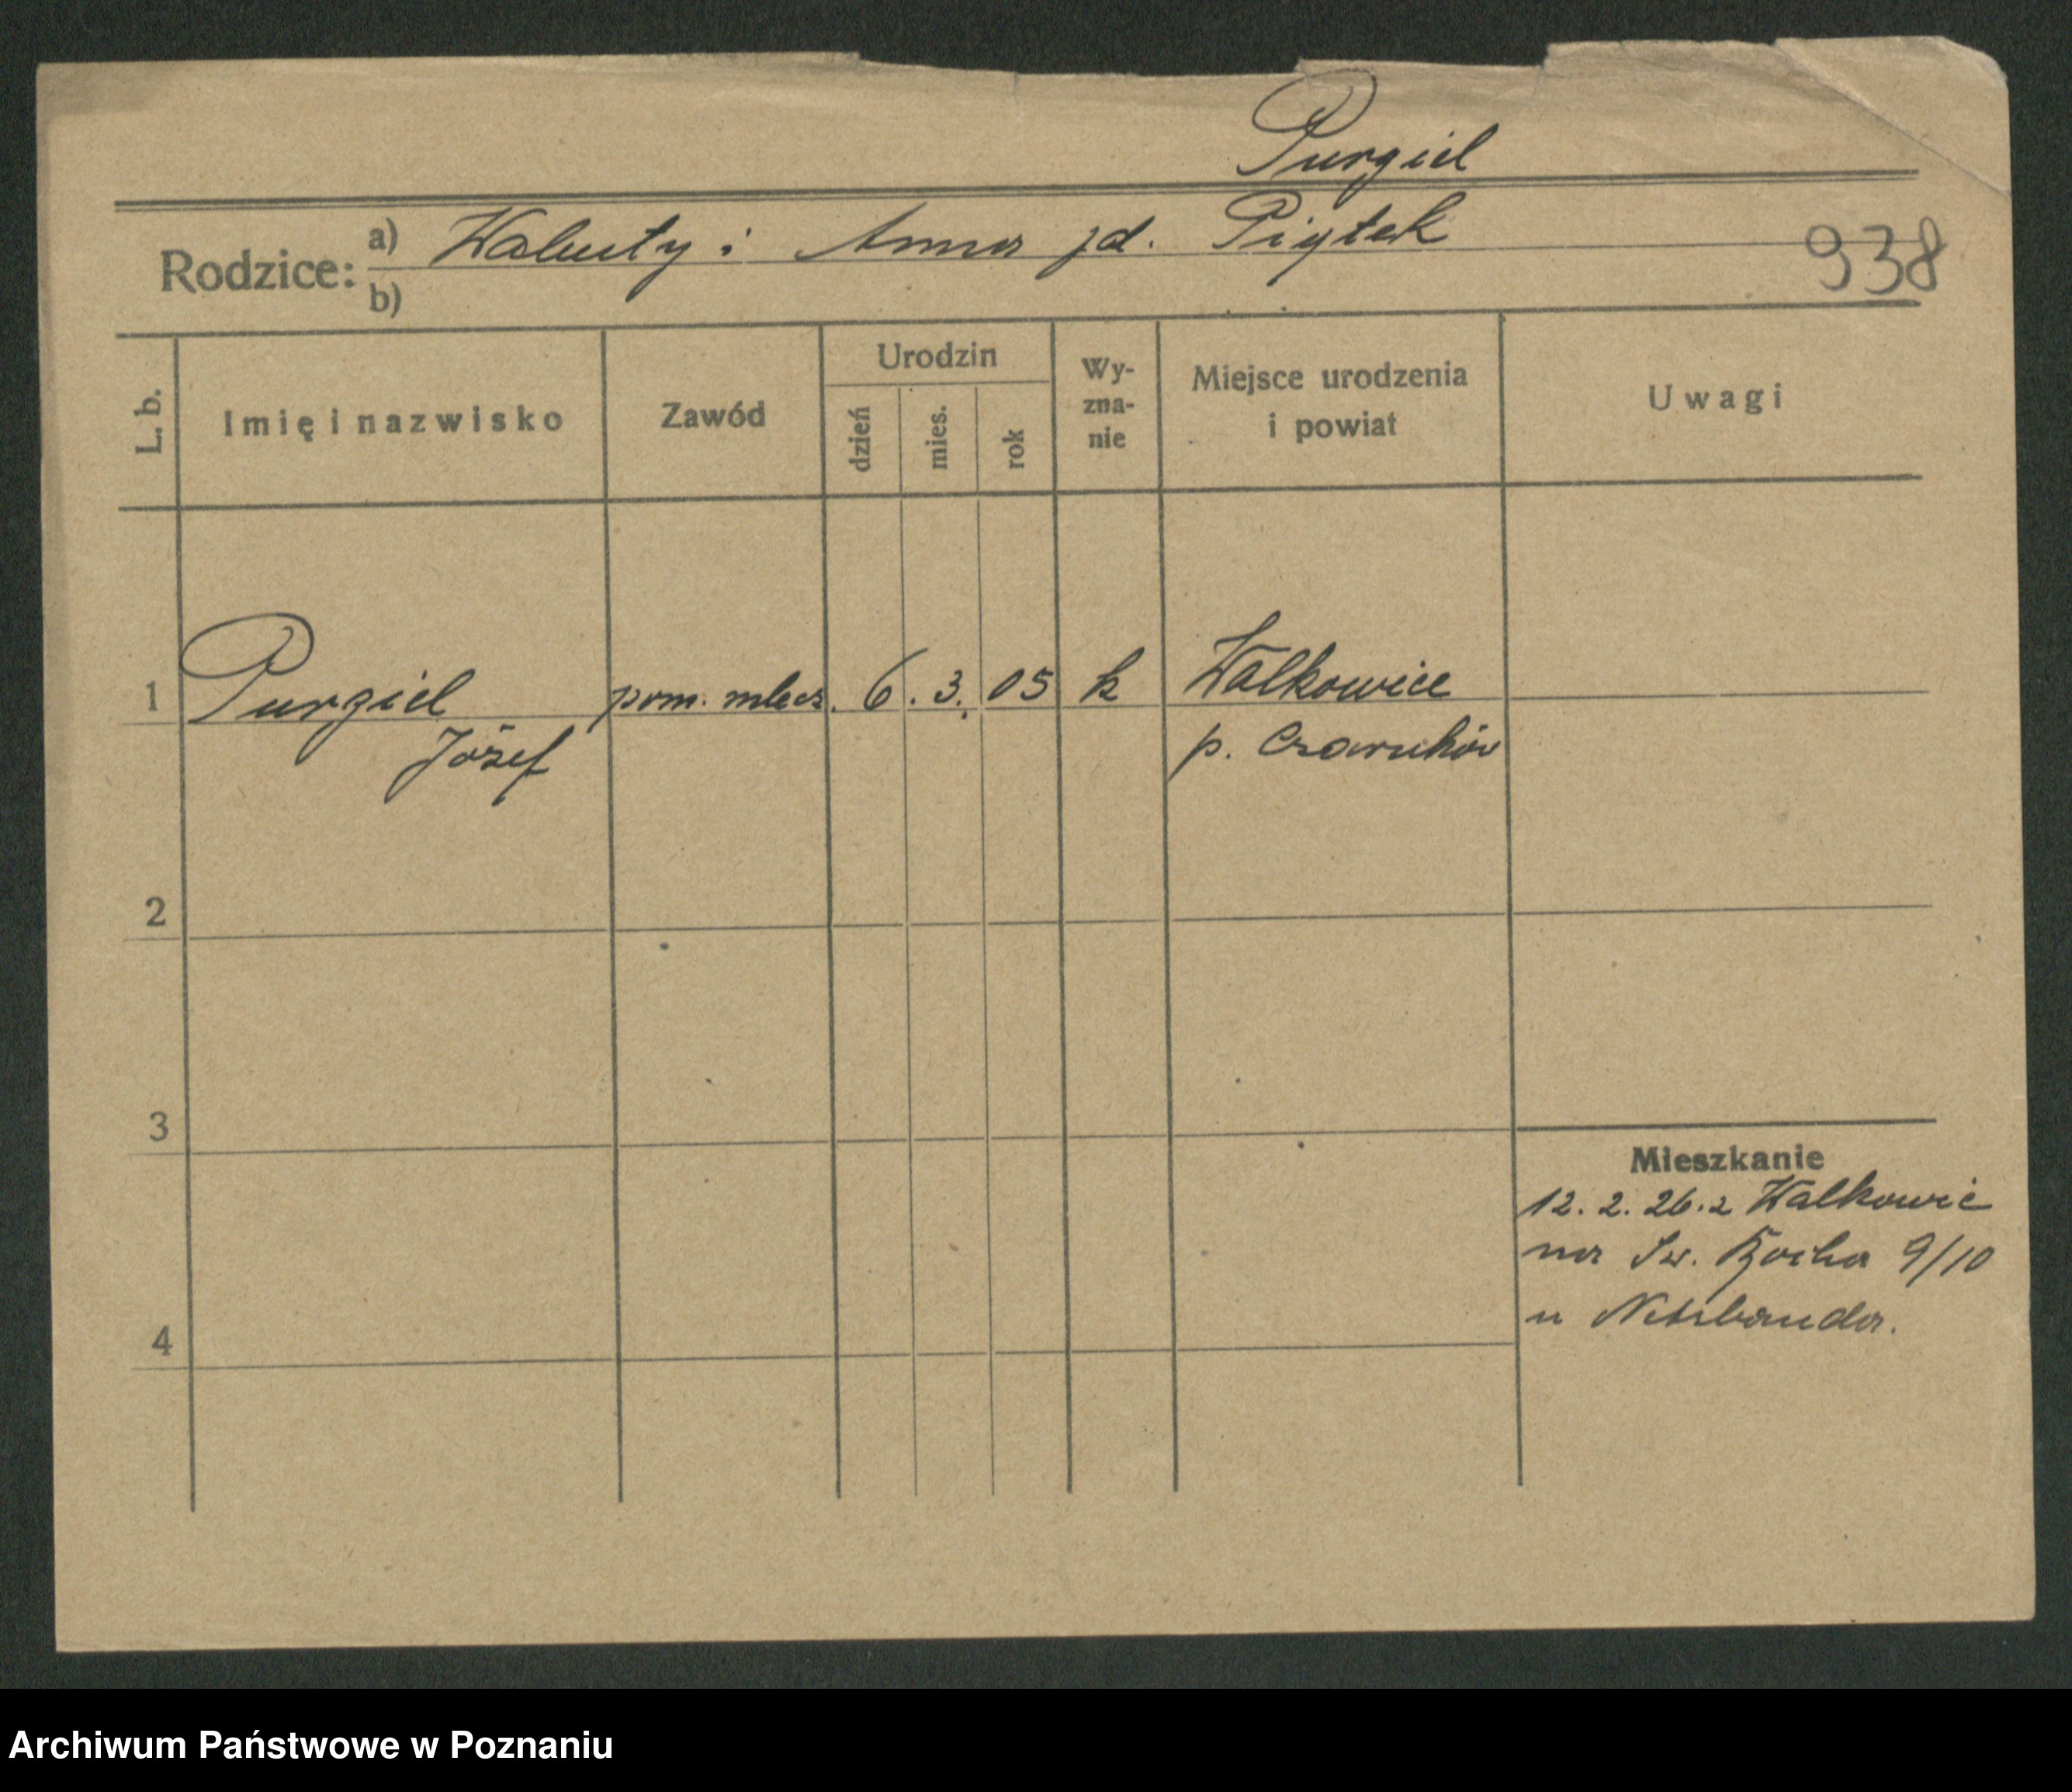 Purgiel
Rodzice: a) Walenty i Anna zd. Piątek
b)
938
L. b.
Imię i nazwisko
Zawód
Urodzin
dzień
mies.
rok
Wy-
zna-
nie
Miejsce urodzenia
i powiat
Uwagi
1 Purgiel pom. mlecz. 6. 3. 05 k Walkowice
Józef p. Czarnków
2
3
Mieszkanie
12. 2. 26. z Walkowic
na Św. Rocha 9/10
u
4
Archiwum Państwowe w Poznaniu